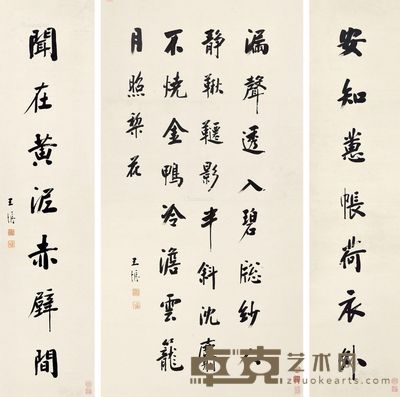 安知蕙帳荷衣外
漏聲透入碧牕紗人
靜鞦韆影半斜沈麝
不燒金鴨冷澹雲籠
月照棃花
王
聞在黃泥赤壁間
王
卓克艺术网
zhuokearts.com